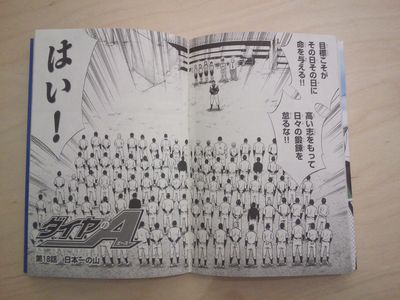 目標こそが
その日その日に
命を与える!!
高い志をもって
日々の鍛錬を
怠るな!!
はい!
ダイヤのA
第18話 日本一の山